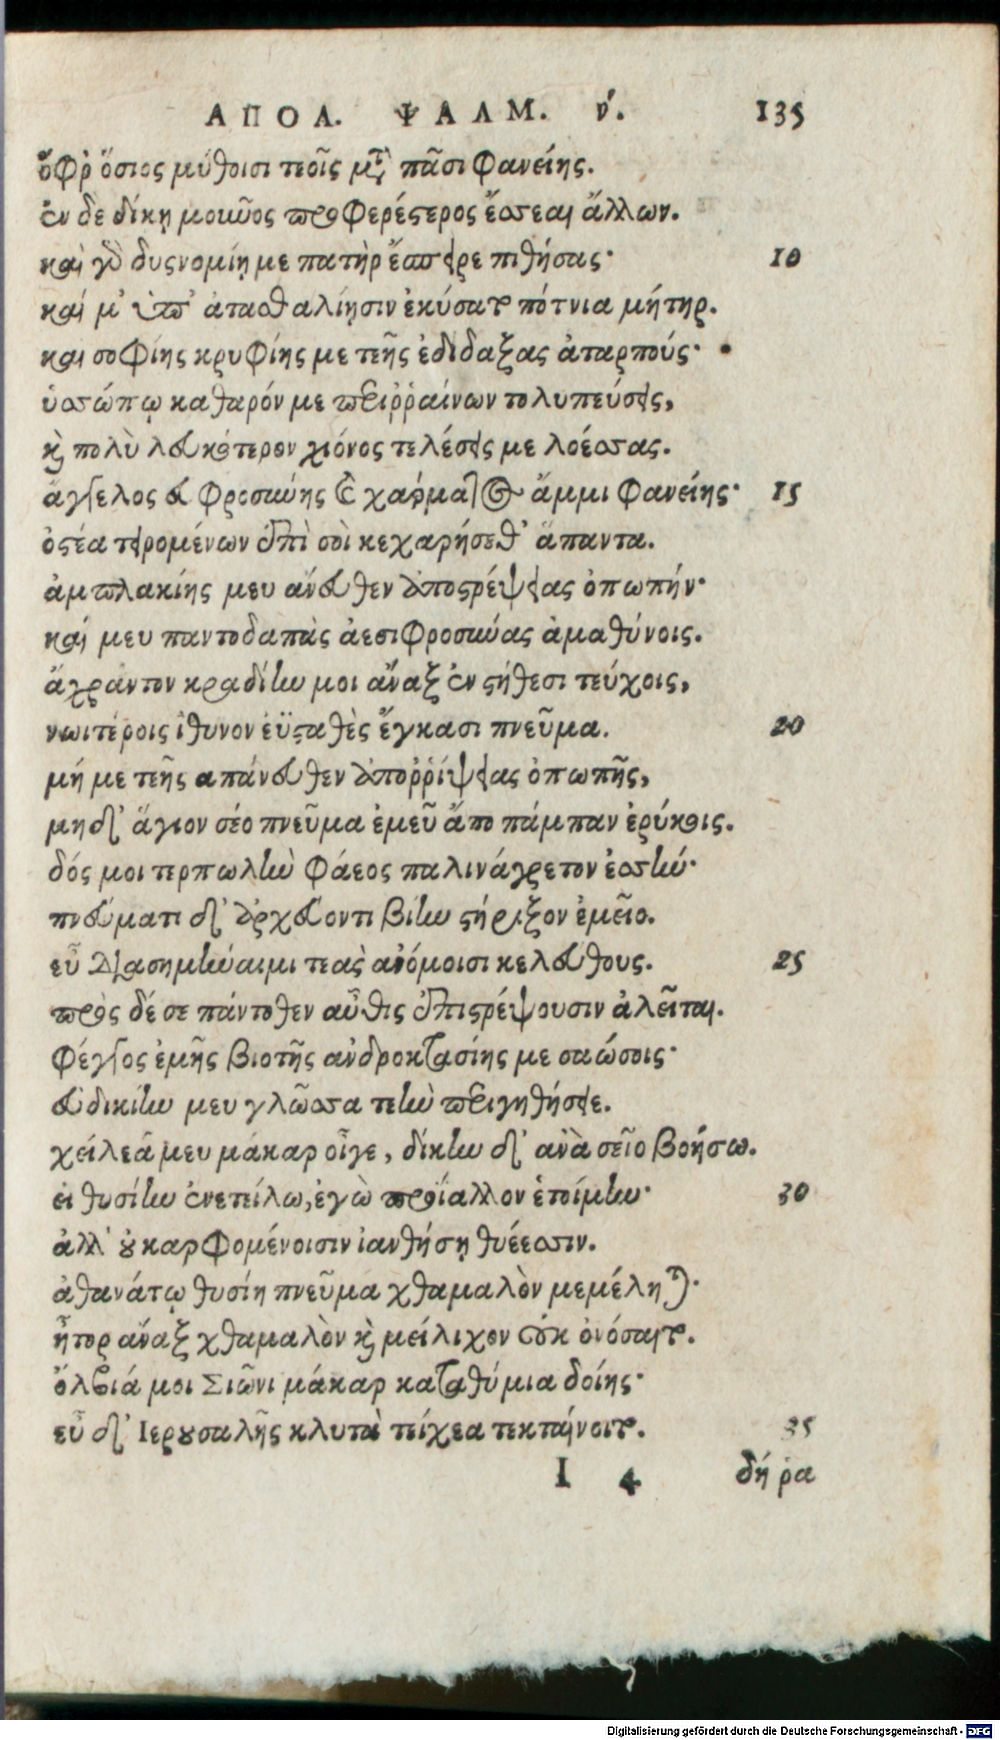 ΑΠΟΛ. ΨΑΛΜ. ν΄. 135
ὄφρ ὅσιος μύθοισι τεοῖς μετὰ πᾶσι φανείης.
ἐν δε δίκῃ μοιῶος προφερέστερος ἔσσεαι ἄλλων.
καὶ γὸ δυςνομίῃ με πατὴρ ἔσπειρε πιθήσας· 10
καί μ' ὑπ' ἀτασθαλίῃσιν ἐκύσατο πότνια μήτηρ.
και σοφίης κρυφίης με τεῆς ἐδίδαξας ἀταρπούς·
ὑσσώπῳ καθαρόν με περιῤῥαίνων τολυπεύσεις,
καὶ πολὺ λευκότερον χιόνος τελέσεις με λοέσσας.
ἄγγελος ευφροσύνης καὶ χάρματος ἄμμι φανείης· 15
ὀστέα τειρομένων ἐπὶ σοὶ κεχαρήσεθ' ἅπαντα.
ἀμπλακίης μευ ἄνευθεν ἀποστρέψειας ὀπωπήν·
καί μευ παντοδαπὰς ἀεσιφροσύνας ἀμαθύνοις.
ἄχραντον κραδίην μοι ἄναξ ἐν στήθεσι τεύχοις,
νωιτέροις ἰθυνον ἐϋσταθὲς ἔγκασι πνεῦμα. 20
μή με τεῆς απάνευθεν ἀποῤῥίψειας ὀπωπῆς,
μηδ' ἅγιον σέο πνεῦμα ἐμεῦ ἄπο πάμπαν ἐρύκοις.
δός μοι τερπωλὴν φάεος παλινάγρετον ἐσθλήν·
πνεύματι δ' ἀρχεύοντι βίην στήριξον ἐμεῖο.
εὖ διασημήναιμι τεὰς ἀνόμοισι κελεύθους. 25
πρὸς δέ σε πάντοθεν αὖθις ἐπιστρέψουσιν ἀλεῖται.
φέγγος ἐμῆς βιοτῆς ανδροκτασίης με σαώσοις·
ευδικίην μευ γλῶσσα τεὴν περιγηθήσειε.
χείλεά μευ μάκαρ οἶγε, δίκην δ' ανὰ σεῖο βοήσω.
ει θυσίην ἐνετείλω, ἐγὼ προΐαλλον ἑτοίμην· 30
ἀλλ' οὐ καρφομένοισιν ἰανθήσῃ θυέεσσιν.
ἀθανάτῳ θυσίη πνεῦμα χθαμαλὸν μεμέληται·
ἦτορ ἄναξ χθαμαλὸν καὶ μείλιχον οὐκ ὀνόσαιτο.
ὄλβιά μοι Σιῶνι μάκαρ καταθύμια δοίης·
εὖ δ' Ιερουσαλῆς κλυτὰ τείχεα τεκταίνοιτο. 35
I 4 δή ῥα
Digitalisierung gefördert durch die Deutsche Forschungsgemeinschaft - DFG